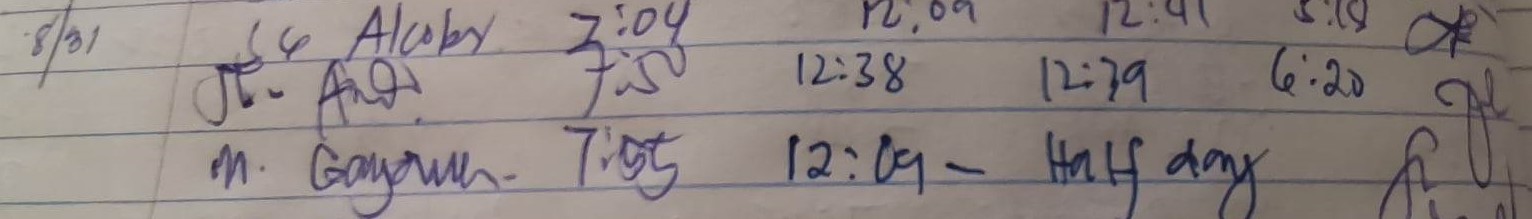 8/31 Alcoby 7:04 12:09 12:41 5:18
7:50 12:38 12:39 6:20
M. 7:05 12:09 - Half day